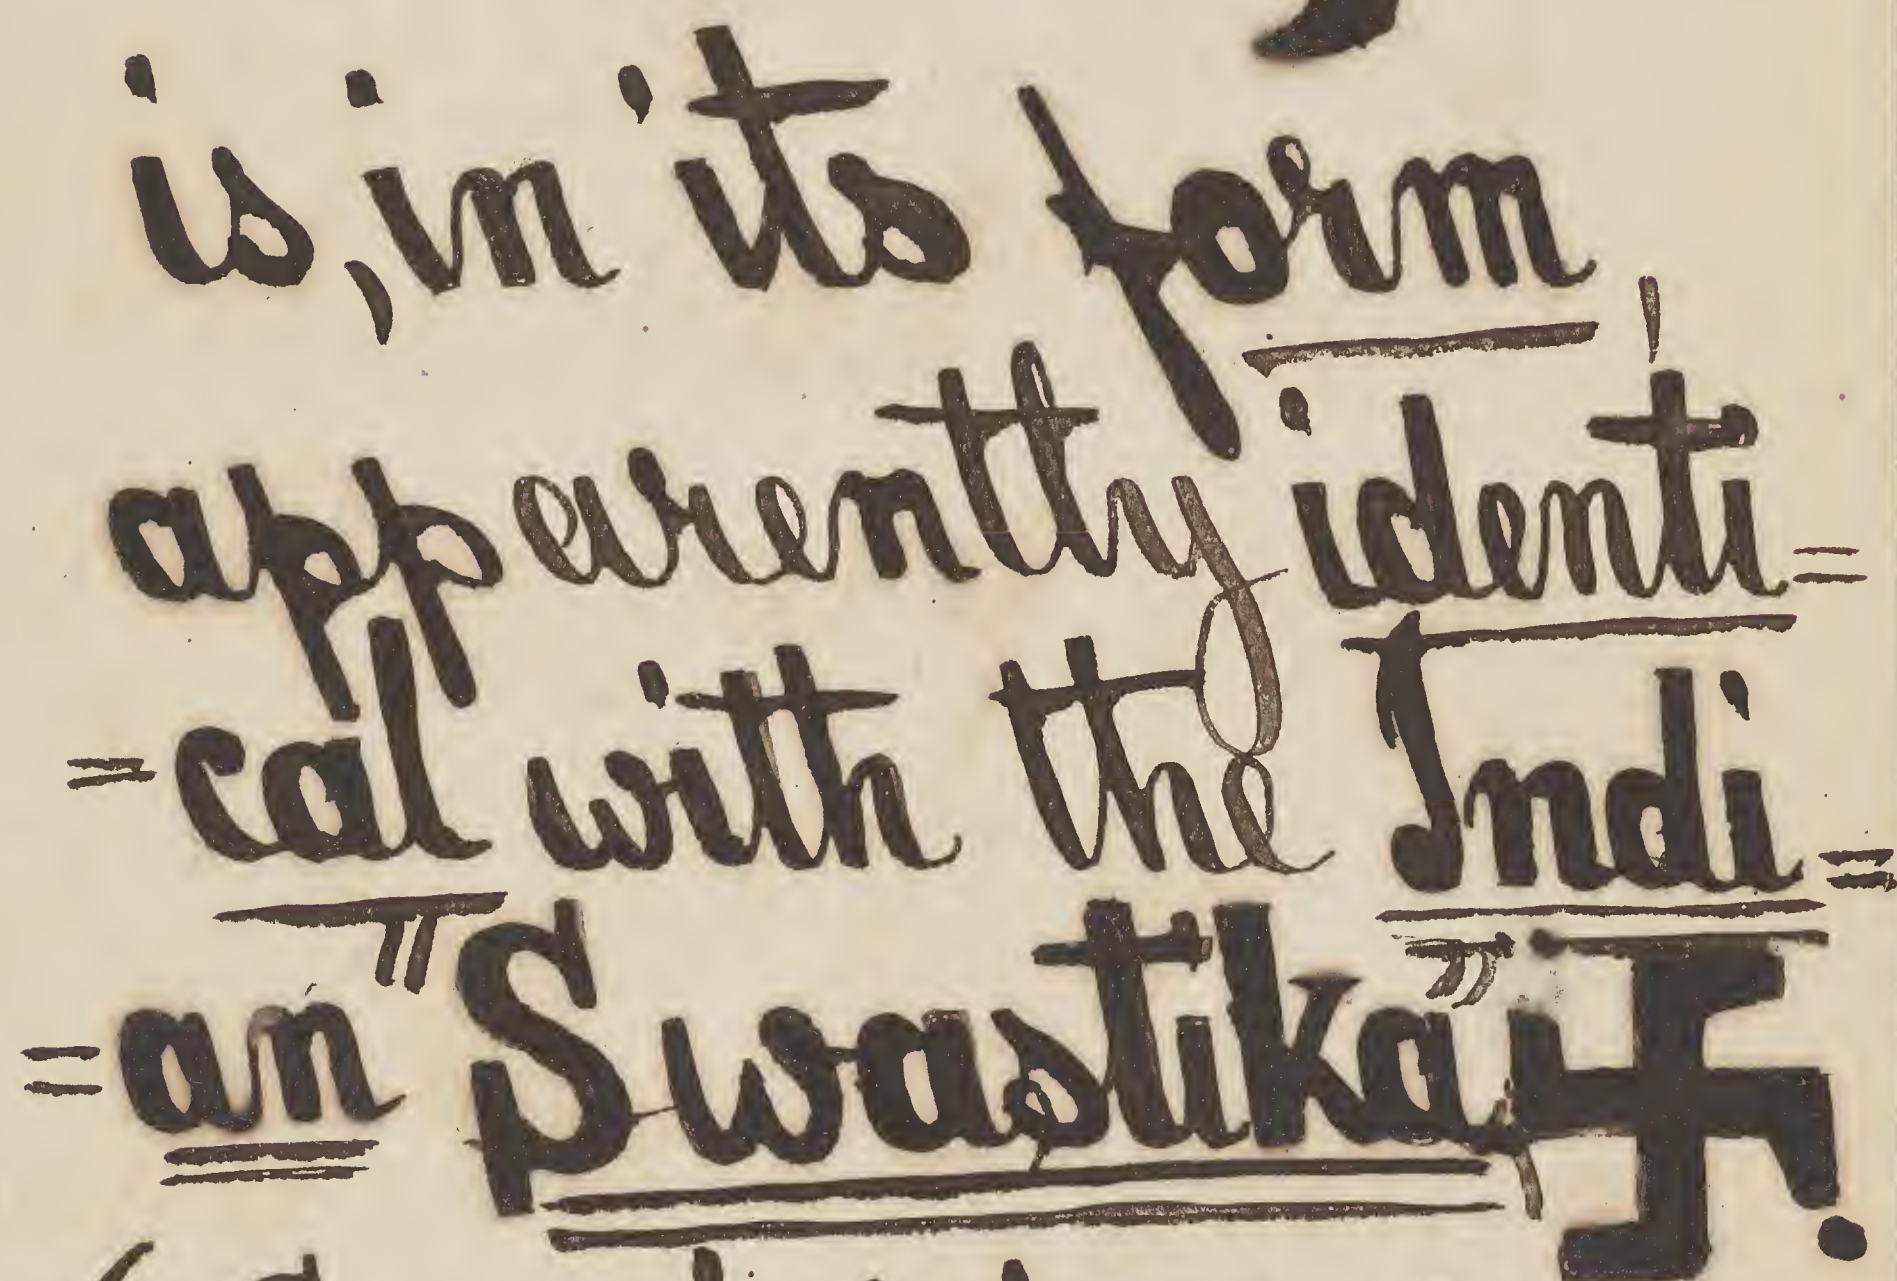 is, in its form
apparently identi=
=cal with the Indi=
=an "Swastika", 卐.